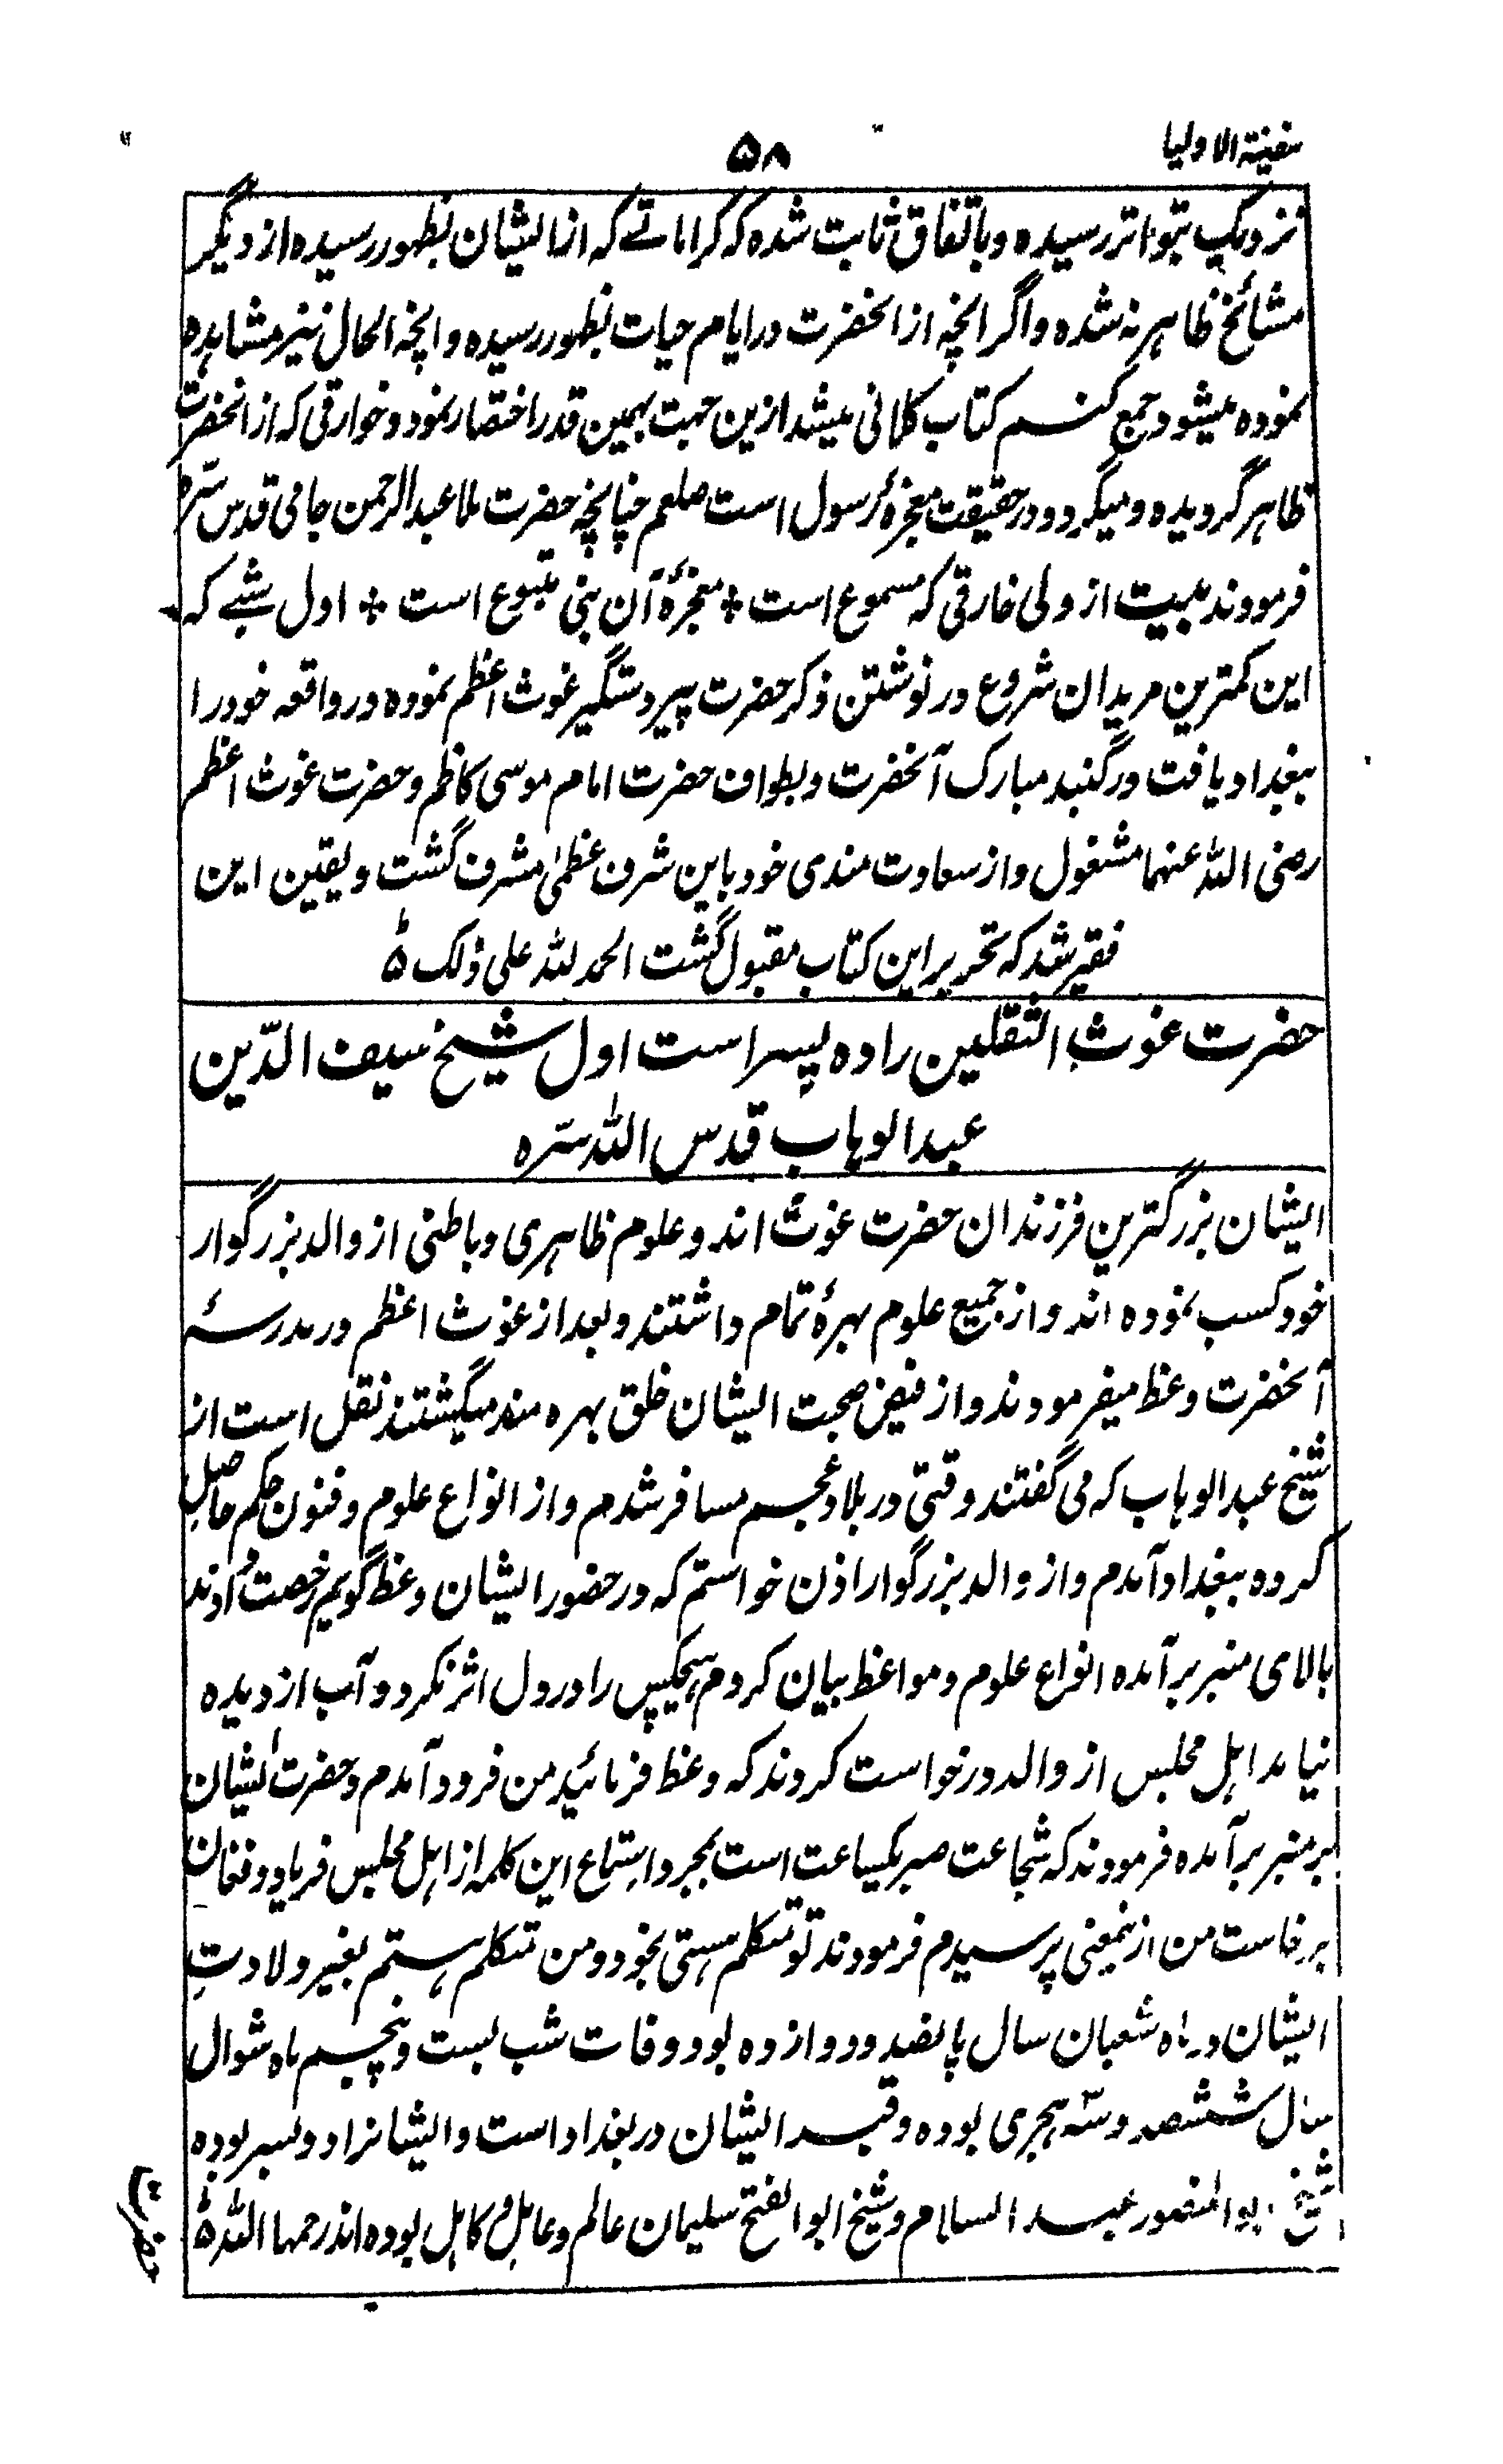 سفینۃ الاولیا
۵۸
نزدیک بتواتر رسیده و باتفاق ثابت شده که کراماتے که ازایشان بظهور رسیده از دیگر
مشائخ ظاهر نه شده و اگر انچه از انحضرت در ایام حیات بظهور رسیده و انچه الحال نیز مشاهده
نموده میشود جمع کنم کتاب کلانی میشد ازین جهت بهمین قدر اختصار نمود و خوارقی که از انحضرت
ظاهر گردیده و میگردد در حقیقت معجزهٔ رسول است صلعم چنانچه حضرت ملا عبدالرحمن جامی قدس سره
فرمودند بیت از ولی خارقی که مسموع است * معجزهٔ آن نبی متبوع است * اول شبے که
این کمترین مریدان شروع در نوشتن ذکر حضرت پیر دستگیر غوث اعظم نموده در واقعه خود را
ببغداد یافت در گنبد مبارک آنحضرت و بطواف حضرت امام موسی کاظم و حضرت غوث اعظم
رضی الله عنهما مشغول و از سعادت مندی خود باین شرف عظمیٰ مشرف گشت و یقین این
فقیر شد که تحریر این کتاب مقبول گشت الحمد لله علی ذلک ۵
حضرت غوث الثقلین را ده پسر است اول شیخ سیف الدّین
عبدالوهاب قدس الله سرّه
ایشان بزرگترین فرزندان حضرت غوث اند و علوم ظاهری و باطنی از والد بزرگوار
خود کسب نموده اند و از جمیع علوم بهرهٔ تمام داشتند و بعد از غوث اعظم در مدرسهٔ
آنحضرت وعظ میفرمودند و از فیض صحبت ایشان خلق بهره مند میگشتند نقل است از
شیخ عبدالوهاب که می گفتند وقتی در بلاد عجم مسافر شدم و از انواع علوم و فنون حکم حاصل
کرده ببغداد آمدم و از والد بزرگوار اذن خواستم که در حضور ایشان وعظ گویم رخصت دادند
بالای منبر برآمده انواع علوم و مواعظ بیان کردم هیچکس را در دل اثر نکرد و آب از دیده
نیامد اهل مجلس از والد درخواست کردند که وعظ فرمائید من فرود آمدم و حضرت ایشان
بر منبر برآمده فرمودند که شجاعت صبر یکساعت است بمجرد استماع این کلمه از اهل مجلس فریاد و فغان
برخاست من ازینمعنی پرسیدم فرمودند تو متکلم هستی بخود و من متکلم هستم بغیر ولادتِ
ایشان در ماه شعبان سال پانصد و دوازده بود و وفات شب بست و پنجم ماه شوال
سال ششصد و سّه هجری بوده و قبر ایشان در بغداد است و ایشانرا دو پسر بوده
شیخ ابوالمنصور عبد السلام و شیخ ابوالفتح سلیمان عالم و عامل و کامل بوده اند رحمها الله ۵